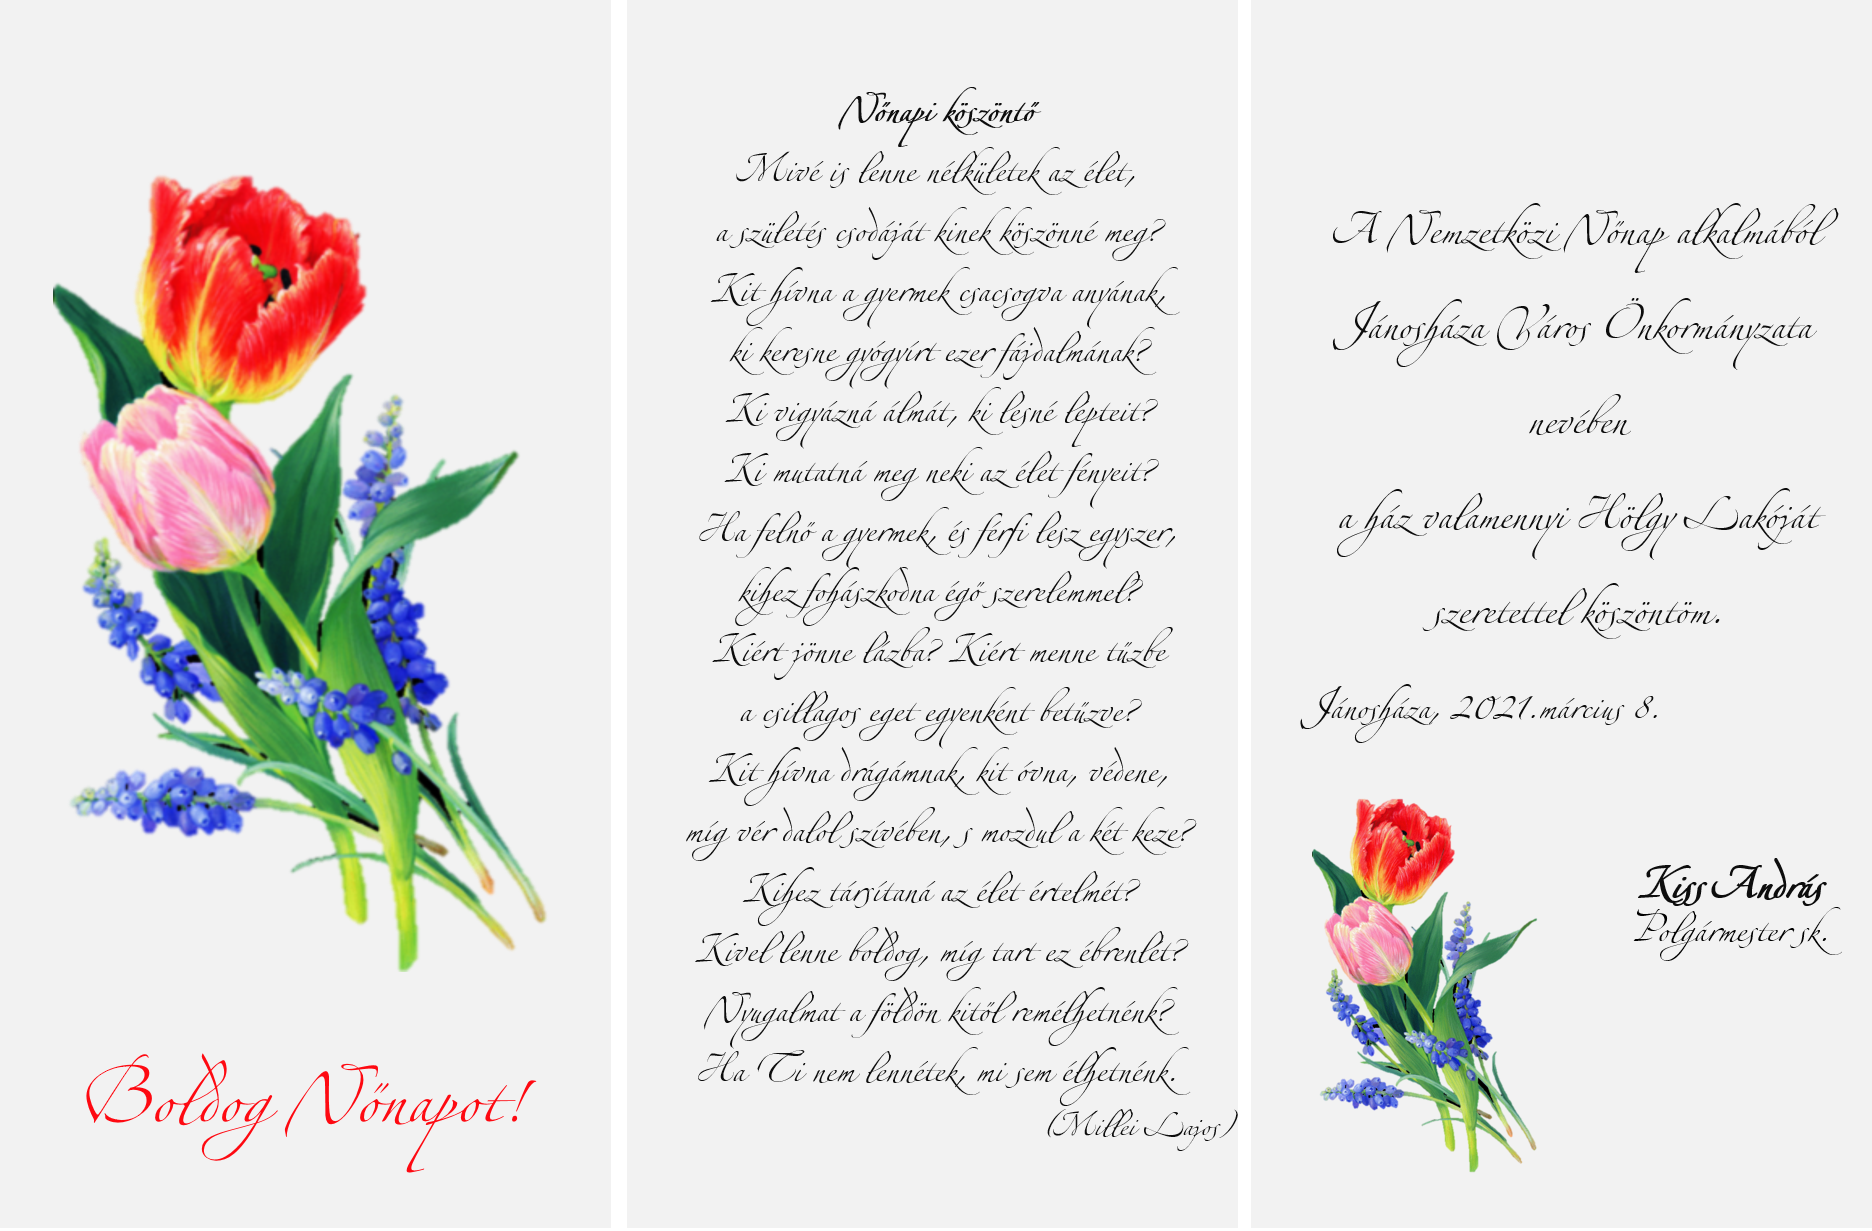 Boldog Nőnapot!
Nőnapi köszöntő
Mivé is lenne nélkületek az élet,
a születés csodáját kinek köszönné meg?
Kit hívna a gyermek csacsogva anyának,
ki keresne gyógyírt ezer fájdalmának?
Ki vigyázná álmát, ki lesné lépteit?
Ki mutatná meg neki az élet fényeit?
Ha felnő a gyermek, és férfi lesz egyszer,
kihez fohászkodna égő szerelemmel?
Kiért jönne lázba? Kiért menne tűzbe
a csillagos eget egyenként betűzve?
Kit hívna drágámnak, kit óvna, védene,
míg vér dalol szívében, s mozdul a két keze?
Kihez társítaná az élet értelmét?
Kivel lenne boldog, míg tart ez ébrenlét?
Nyugalmat a földön kitől remélhetnénk?
Ha Ti nem lennétek, mi sem élhetnénk.
(Millei Lajos)
A Nemzetközi Nőnap alkalmából
Jánosháza Város Önkormányzata
nevében
a ház valamennyi Hölgy Lakóját
szeretettel köszöntöm.
Jánosháza, 2021.március 8.
Kiss András
Polgármester sk.